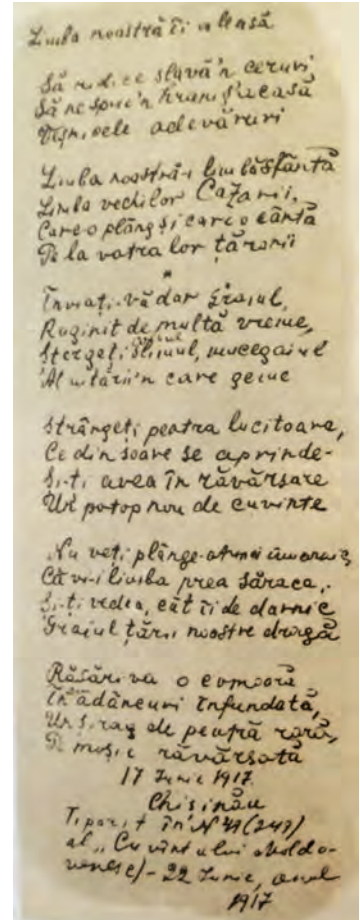 Limba noastră îi aleasă
Să ridice slavă'n ceruri
Să ne spuie'n hram și acasă
Veșnicele adevăruri
Limba noastră-i limbă sfântă
Limba vechilor Cazanii,
Care o plâng și care o cântă
Pe la vatra lor țăranii
*
Înviați-vă dar graiul,
Ruginit de multă vreme,
Ștergeți slinul, mucegaiul
Al uitării'n care geme
Strângeți peatra lucitoare,
Ce din soare se aprinde-
Și-ți avea în răvărsare
Un potop nou de cuvinte
Nu veți plânge atunci amarnic
Că vi-i limba prea săracă,
Și-ți vedea, cât îi de darnic
Graiul țării noastre dragă
Răsări va o comoară
În adâncuri înfundată,
Un șirag de peatră rară,
Pe moșie răvărsată
17 Iunie 1917
Chișinău
Tipărit în N 49 (247)
al „Cuvântului Moldo-
venesc) - 22 Iunie, anul
1917